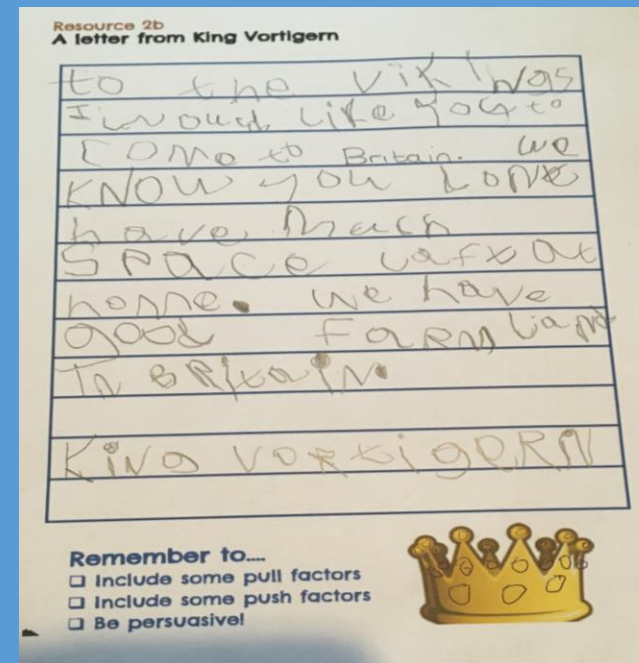 Resource 2b
A letter from King Vortigern
to the Vikings
I woud like you to
come to Britain. we
KNOW you DONt
have much
SPace Left at
home. we have
good FaRM Land
In BRitaiN.
KiNg VORtigeRN
Remember to....
Include some pull factors
Include some push factors
Be persuasive!